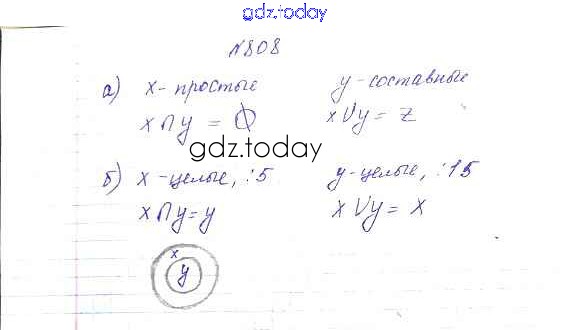 gdz.today
№808
а) x - простые y - составные
x ∩ y = ∅ x U y = Z
gdz.today
б) x - целые, : 5 y - целые, : 15
x ∩ y = y x U y = x
x
y